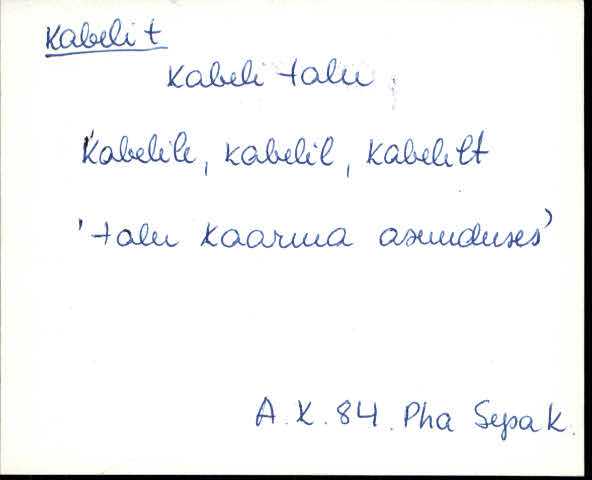 Kabeli t
Kabeli talu,
Kabelile, kabelil, kabelilt
'talu Kaarma asunduses'
A.K. 84. Pha Sepa k.